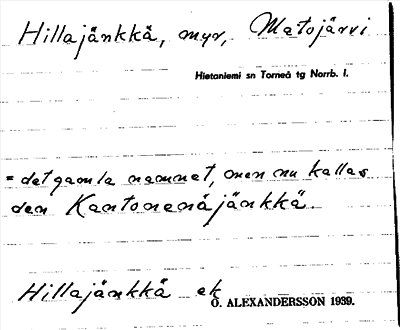 Hillajänkkä, myr, Matojärvi
Hietaniemi sn Torneå tg Norrb. l.
= det gamla namnet, men nu kallas
den Kantonenäjänkkä.
Hillajänkkä ek
O. ALEXANDERSSON 1939.